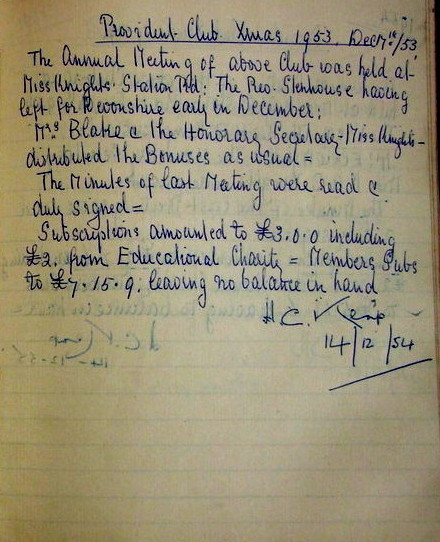 Provident Club Xmas 1953. Dec 7th/53
The Annual Meeting of above Club was held at
Miss Knights' Station Rd: The Rev. Stenhouse having
left for Devonshire early in December:
Mrs Blake & the Honorary Secretary - Miss Knights -
distributed the Bonuses as usual =
The Minutes of last Meeting were read &
duly signed =
Subscriptions amounted to £3.0.0 including
£2. from Educational Charity = Members Subs
to £7.15.9. leaving no balance in hand
H C Kemp
14/12/54